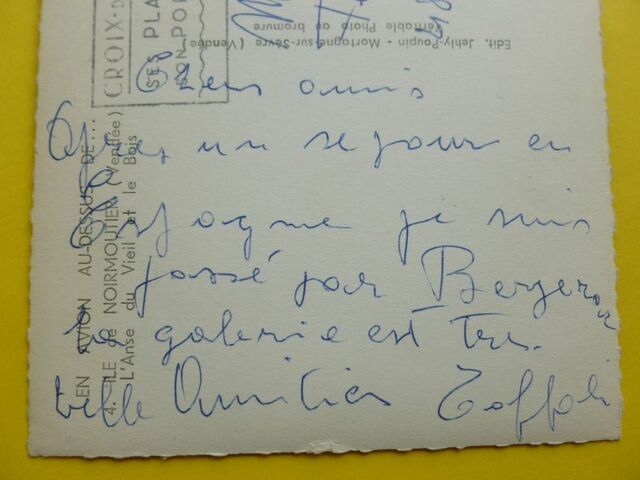 Chers amis
Après un sejour en
Espagne je suis
passé par Bergerac
la galerie est très
belle Amitiés Toffoli
EN AVION AU-DESSUS DE...
4. ILE de NOIRMOUTIER (Vendée)
L'Anse du Vieil et le Bois
Edit. Jehly-Poupin - Mortagne-sur-Sèvre (Vendée)
Véritable Photo au bromure
CROIX-D
SES PLA
SON POR